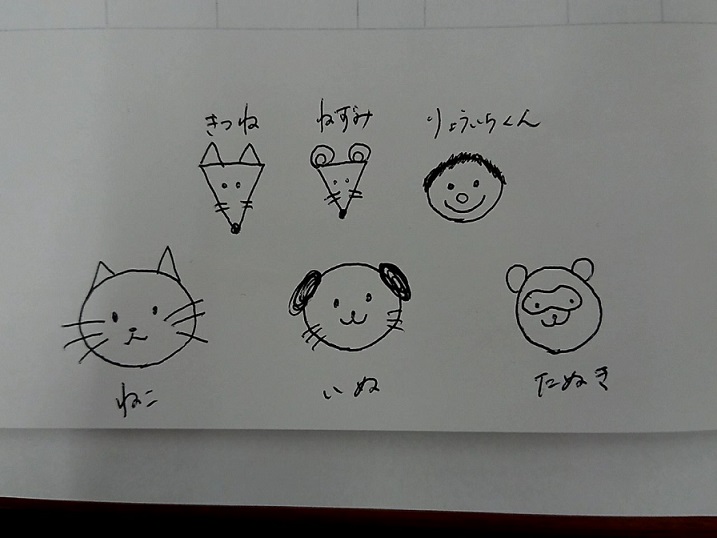 きつね
ねずみ
りょういちくん
ねこ
いぬ
たぬき